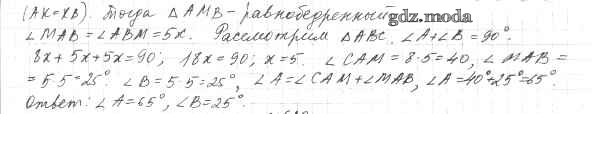 (AK=KB). Тогда △AMB - равнобедренный gdz.moda
∠MAB=∠ABM=5x. Рассмотрим △ABC, ∠A+∠B=90°.
8x+5x+5x=90; 18x=90; x=5. ∠CAM=8·5=40, ∠MAB=
=5·5=25°. ∠B=5·5=25°, ∠A=∠CAM+∠MAB, ∠A=40°+25°=65°.
Ответ: ∠A=65°, ∠B=25°.